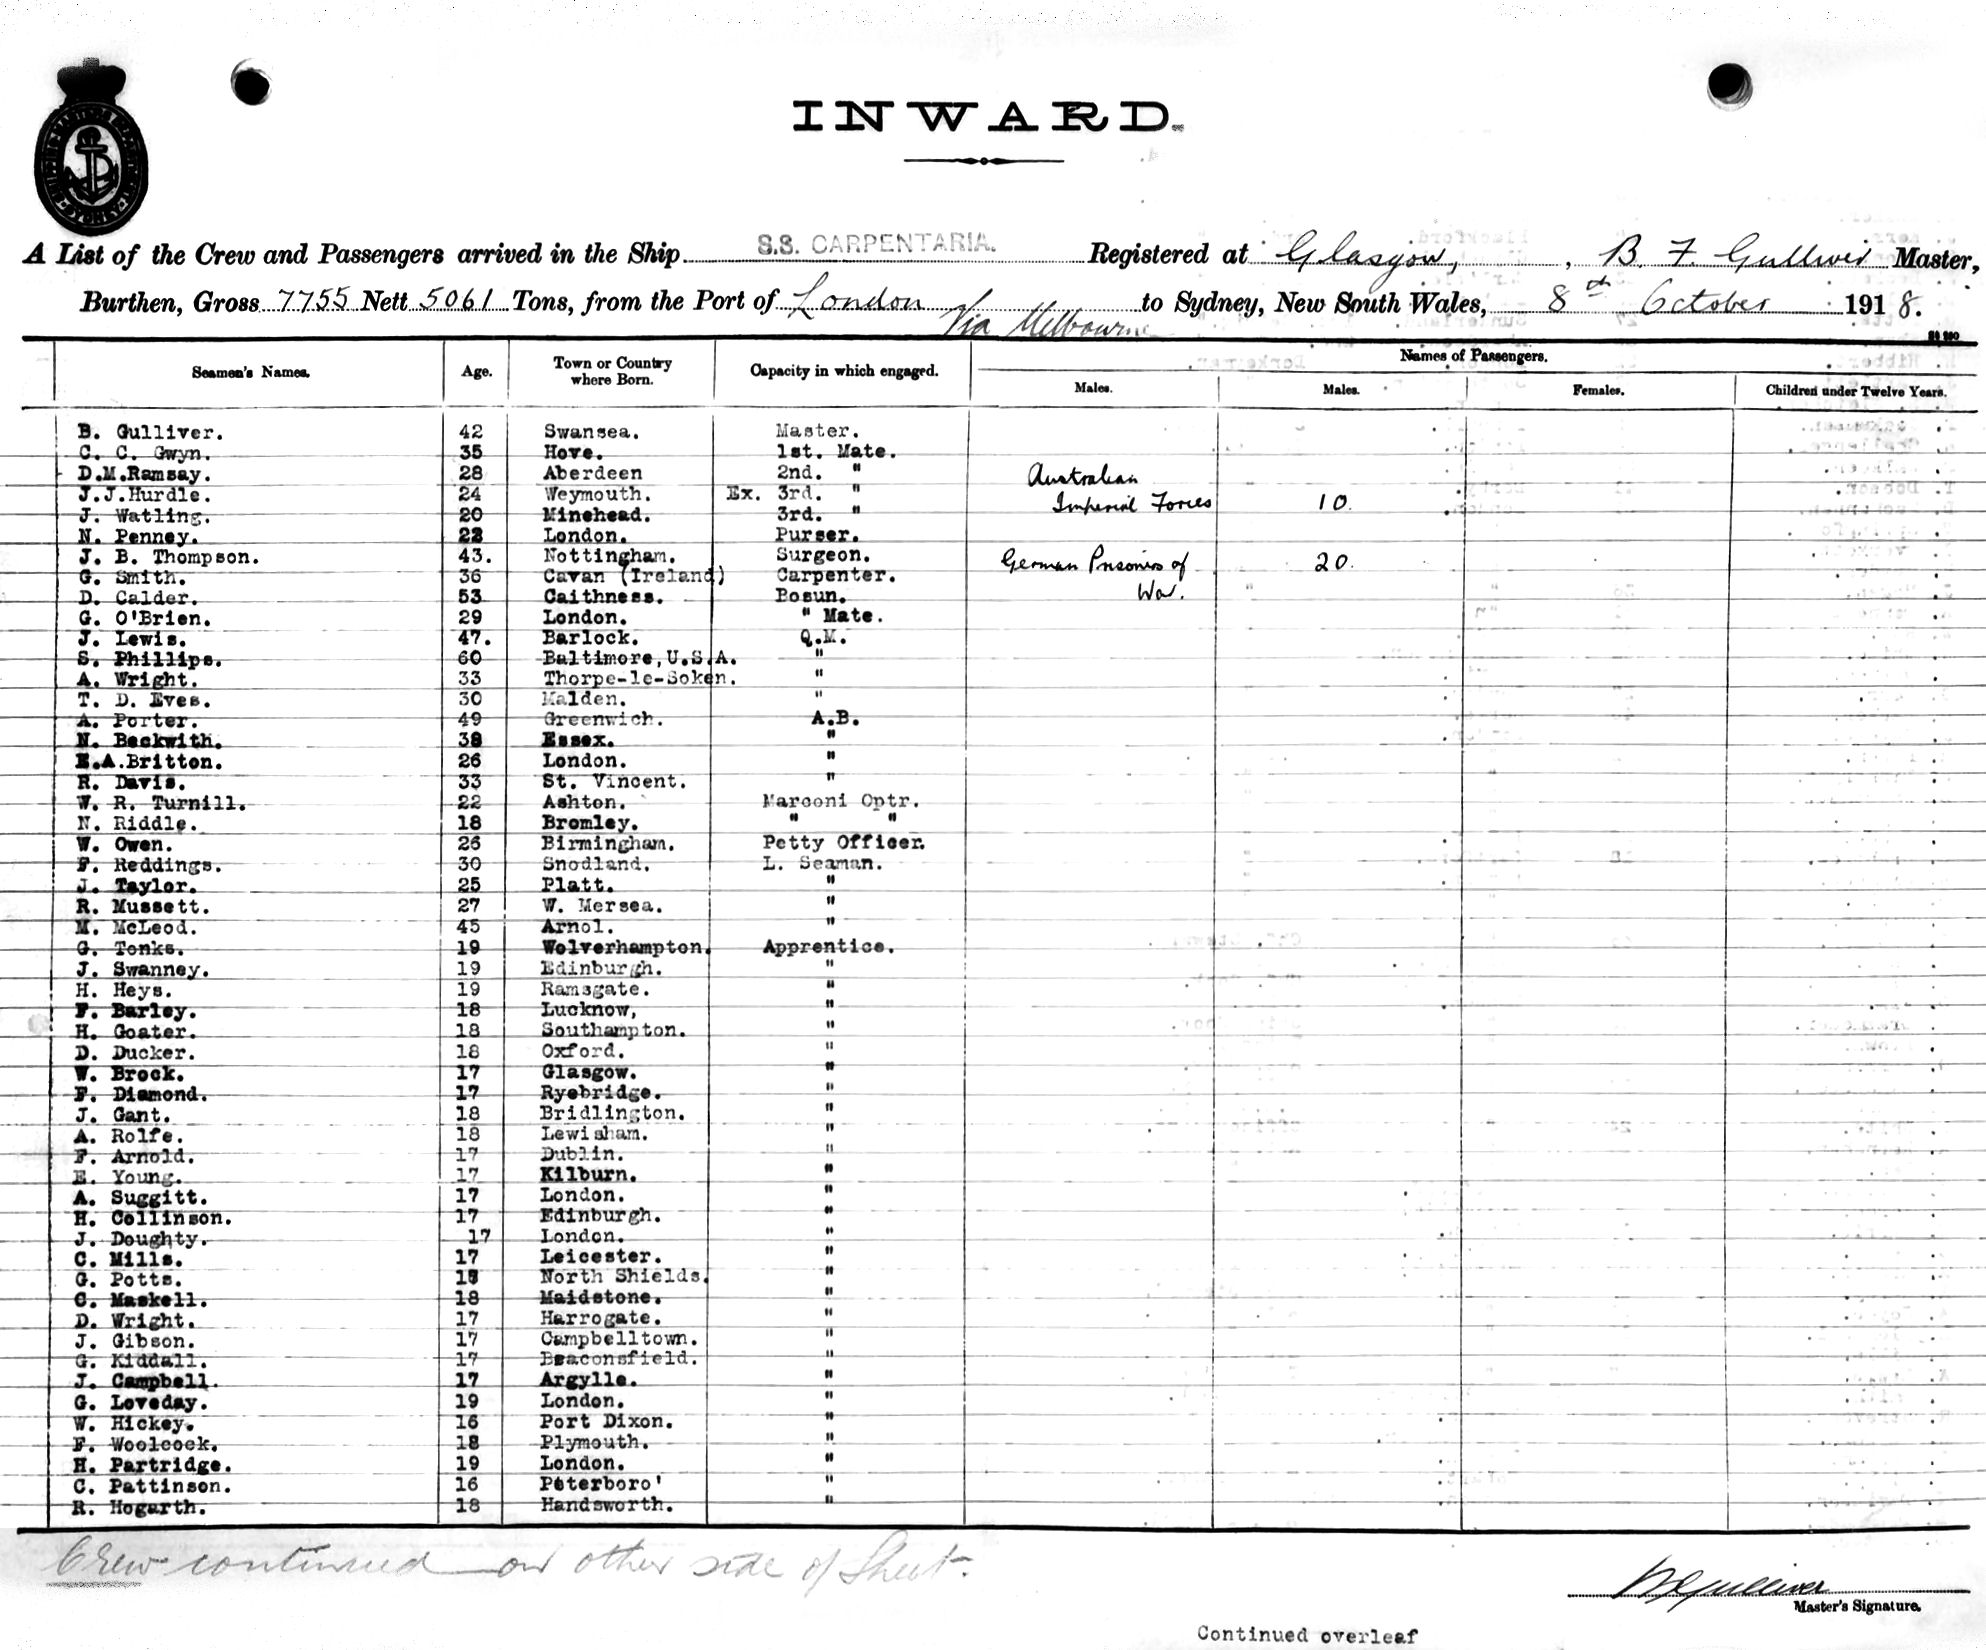 INWARD.
A List of the Crew and Passengers arrived in the Ship S.S. CARPENTARIA. Registered at Glasgow, , B. F. Gulliver Master,
Burthen, Gross 7755 Nett 5061 Tons, from the Port of London Via Melbourne to Sydney, New South Wales, 8th October 1918.
Names of Passengers.
Seamen's Names. Age. Town or Country where Born. Capacity in which engaged. Males. Males. Females. Children under Twelve Years.
B. Gulliver. 42 Swansea. Master.
C. C. Gwyn. 35 Hove. 1st. Mate.
D.M.Ramsay. 28 Aberdeen 2nd. " Australian
J.J.Hurdle. 24 Weymouth. Ex. 3rd. " Imperial Forces 10.
J. Watling. 20 Minehead. 3rd. "
N. Penney. 22 London. Purser.
J. B. Thompson. 43. Nottingham. Surgeon. German Prisoners of 20.
G. Smith. 36 Cavan (Ireland) Carpenter. War.
D. Calder. 53 Caithness. Bosun.
G. O'Brien. 29 London. " Mate.
J. Lewis. 47. Barlock. Q.M.
S. Phillips. 60 Baltimore, U.S.A. "
A. Wright. 33 Thorpe-le-Soken. "
T. D. Eves. 30 Malden. "
A. Porter. 49 Greenwich. A.B.
N. Beckwith. 38 Essex. "
E.A.Britton. 26 London. "
R. Davis. 33 St. Vincent. "
W. R. Turnill. 22 Ashton. Marconi Optr.
N. Riddle. 18 Bromley. " "
W. Owen. 26 Birmingham. Petty Officer.
F. Reddings. 30 Snodland. L. Seaman.
J. Taylor. 25 Platt. "
R. Mussett. 27 W. Mersea. "
M. McLeod. 45 Arnol. "
G. Tonks. 19 Wolverhampton. Apprentice.
J. Swanney. 19 Edinburgh. "
H. Heys. 19 Ramsgate. "
F. Barley. 18 Lucknow, "
H. Goater. 18 Southampton. "
D. Ducker. 18 Oxford. "
W. Brock. 17 Glasgow. "
F. Diamond. 17 Ryebridge. "
J. Gant. 18 Bridlington. "
A. Rolfe. 18 Lewisham. "
F. Arnold. 17 Dublin. "
E. Young. 17 Kilburn. "
A. Suggitt. 17 London. "
H. Collinson. 17 Edinburgh. "
J. Doughty. 17 London. "
C. Mills. 17 Leicester. "
G. Potts. North Shields. "
C. Maskell. 18 Maidstone. "
D. Wright. 17 Harrogate. "
J. Gibson. 17 Campbelltown. "
G. Kiddall. 17 Beaconsfield. "
J. Campbell. 17 Argylle. "
G. Loveday. 19 London. "
W. Hickey. 16 Port Dixon. "
F. Woolcock. 18 Plymouth. "
H. Partridge. 19 London. "
C. Pattinson. 16 Peterboro' "
R. Hogarth. 18 Handsworth. "
Crew continued on other side of Sheet.
B Gulliver
Master's Signature.
Continued overleaf